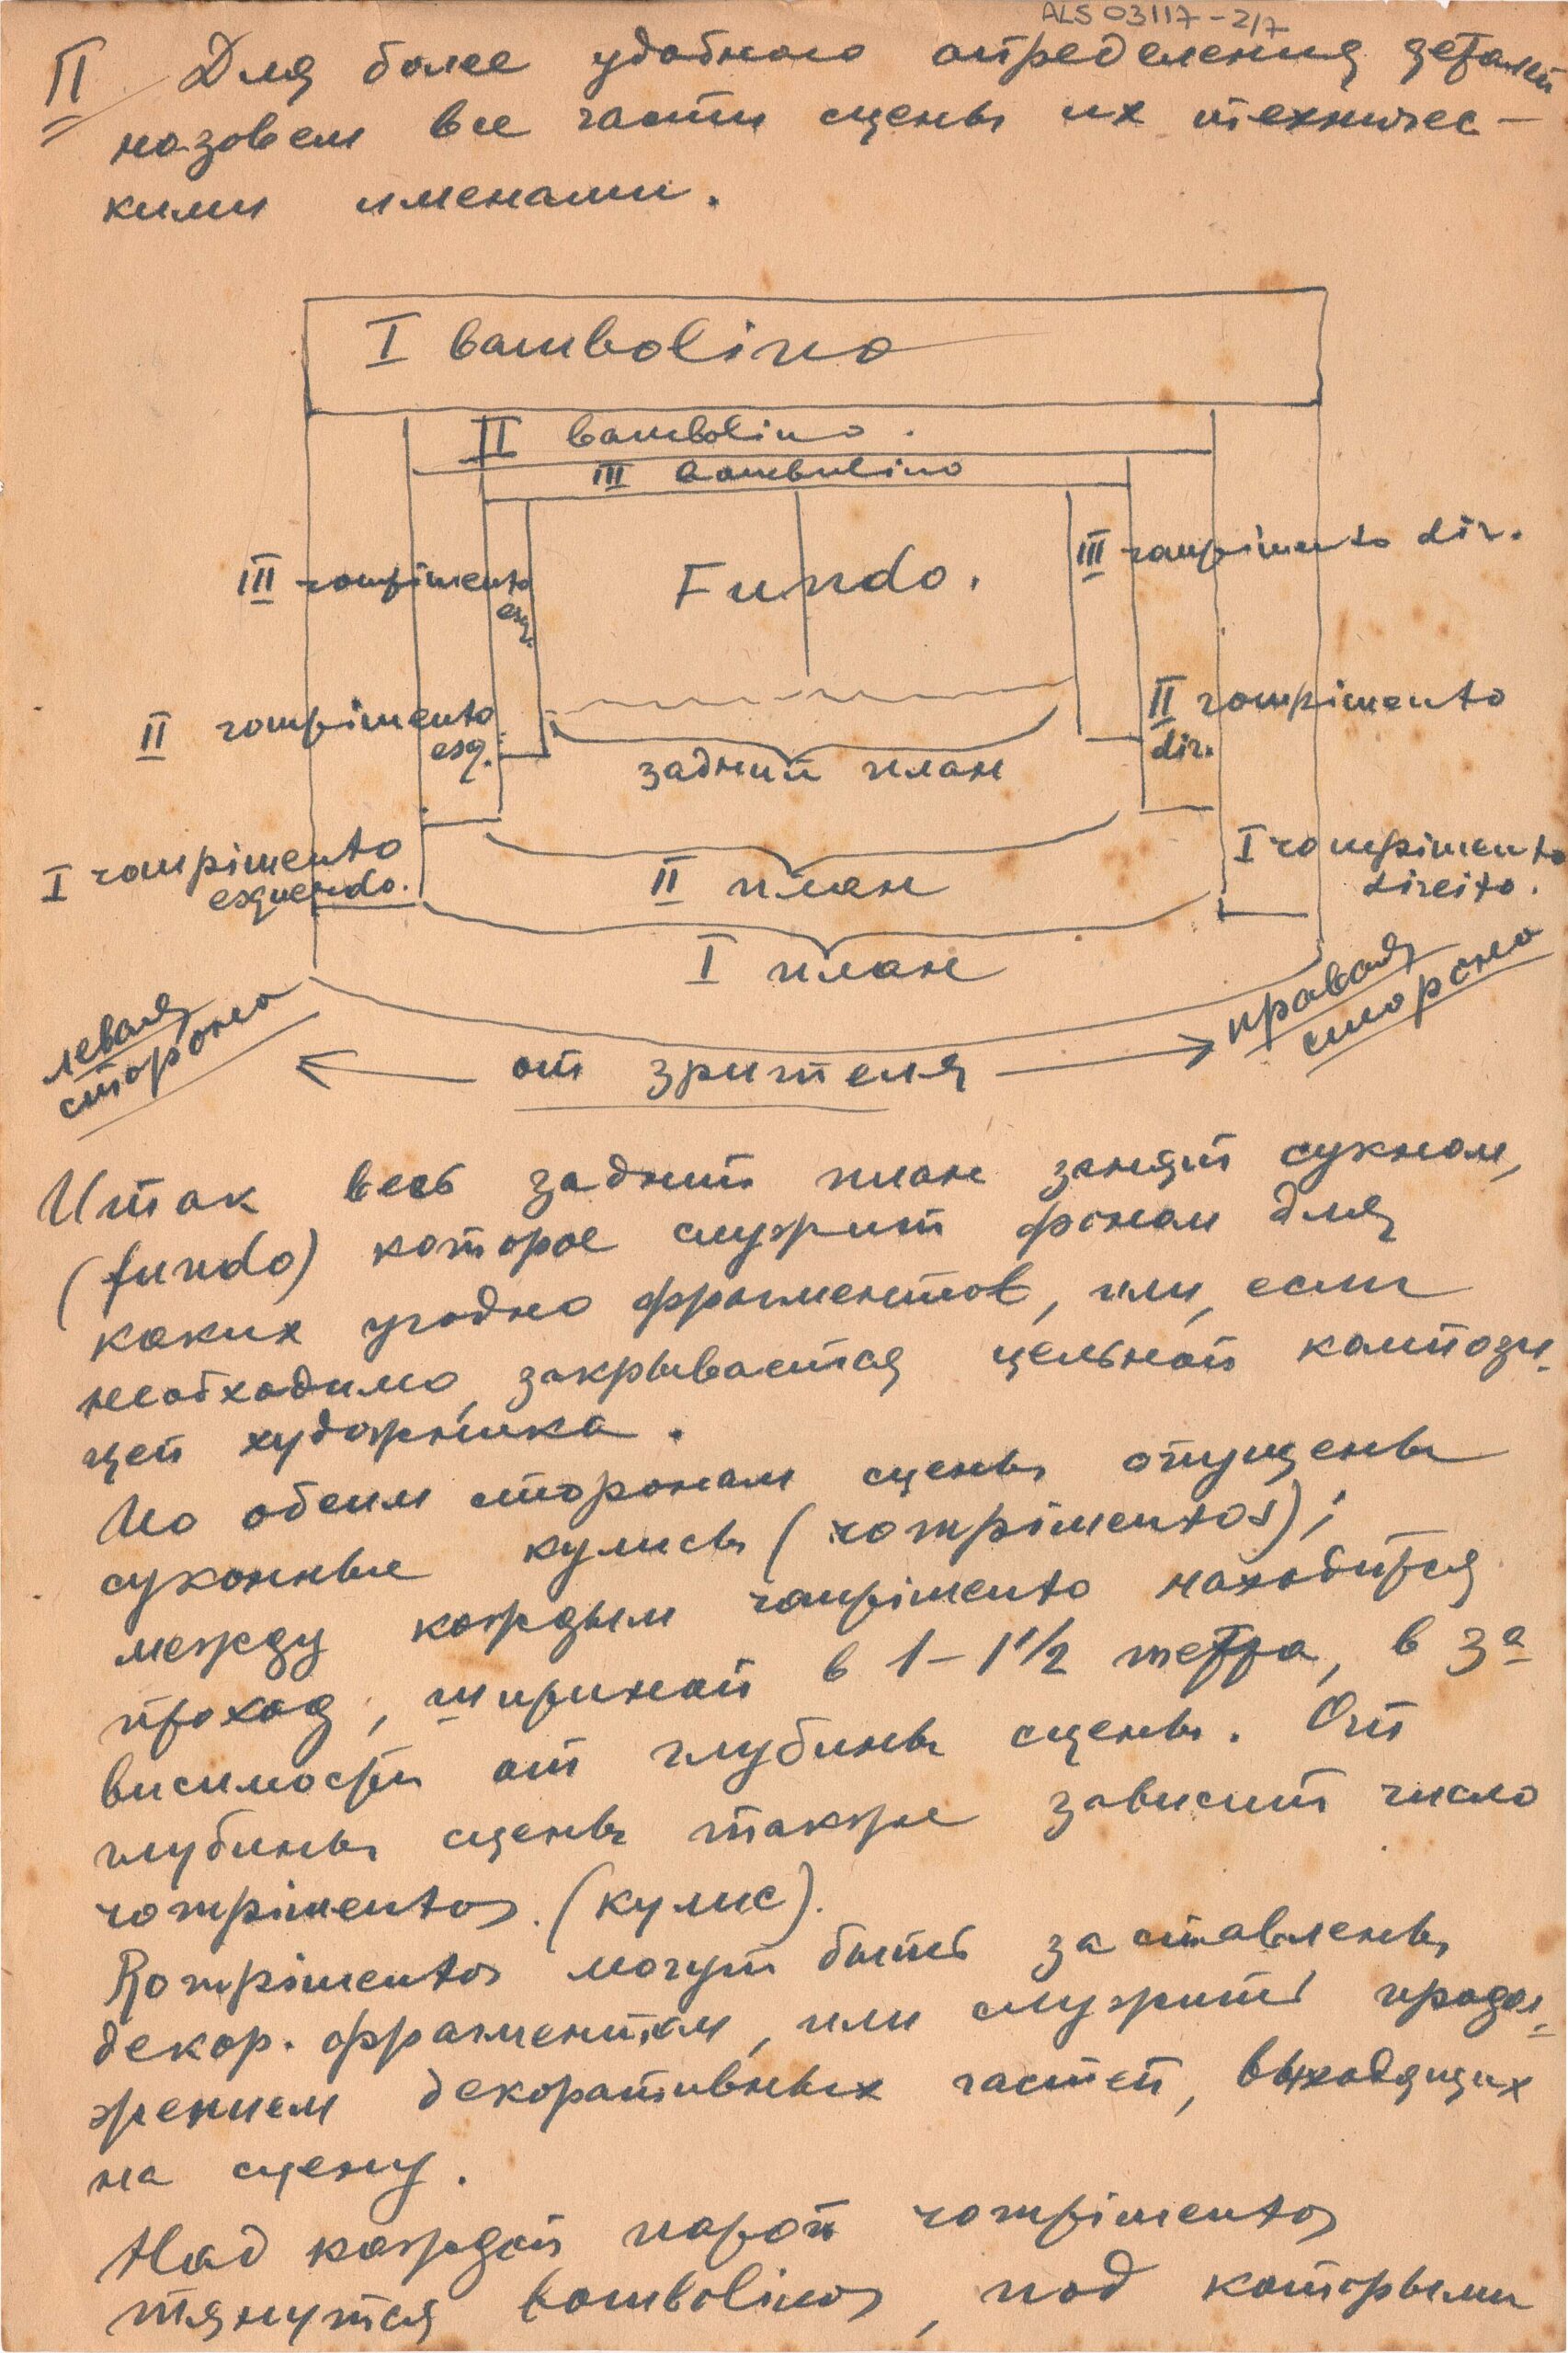 ALS 03117-2/7
II Для более удобного определения деталей
назовем все части сцены их техничес-
кими именами.
I bambolino
II bambolino.
III bambolino
III rompimento
esq.
Fundo.
III rompimento dir.
II rompimento
esq.
II rompimento
dir.
задний план
I rompimento
esquerdo.
II план
I rompimento
direito.
I план
левая
сторона
от зрителя
правая
сторона
Итак весь задний план занят сукном,
(fundo) которое служит фоном для
каких угодно фрагментов, или, если
необходимо, закрывается цельной компози-
цей художника.
По обеим сторонам сцены опущены
суконные кулисы (rompimentos);
между каждым rompimento находится
проход, шириной в 1-1 1/2 метра, в за
висимости от глубины сцены. От
глубины сцены также зависит число
rompimentos. (кулис).
Rompimentos могут быть заставлены
декор. фрагментом, или служить продол-
жением декоративных частей, выходящих
на сцену.
Над каждой парой rompimentos
тянутся bambolinos, под которыми